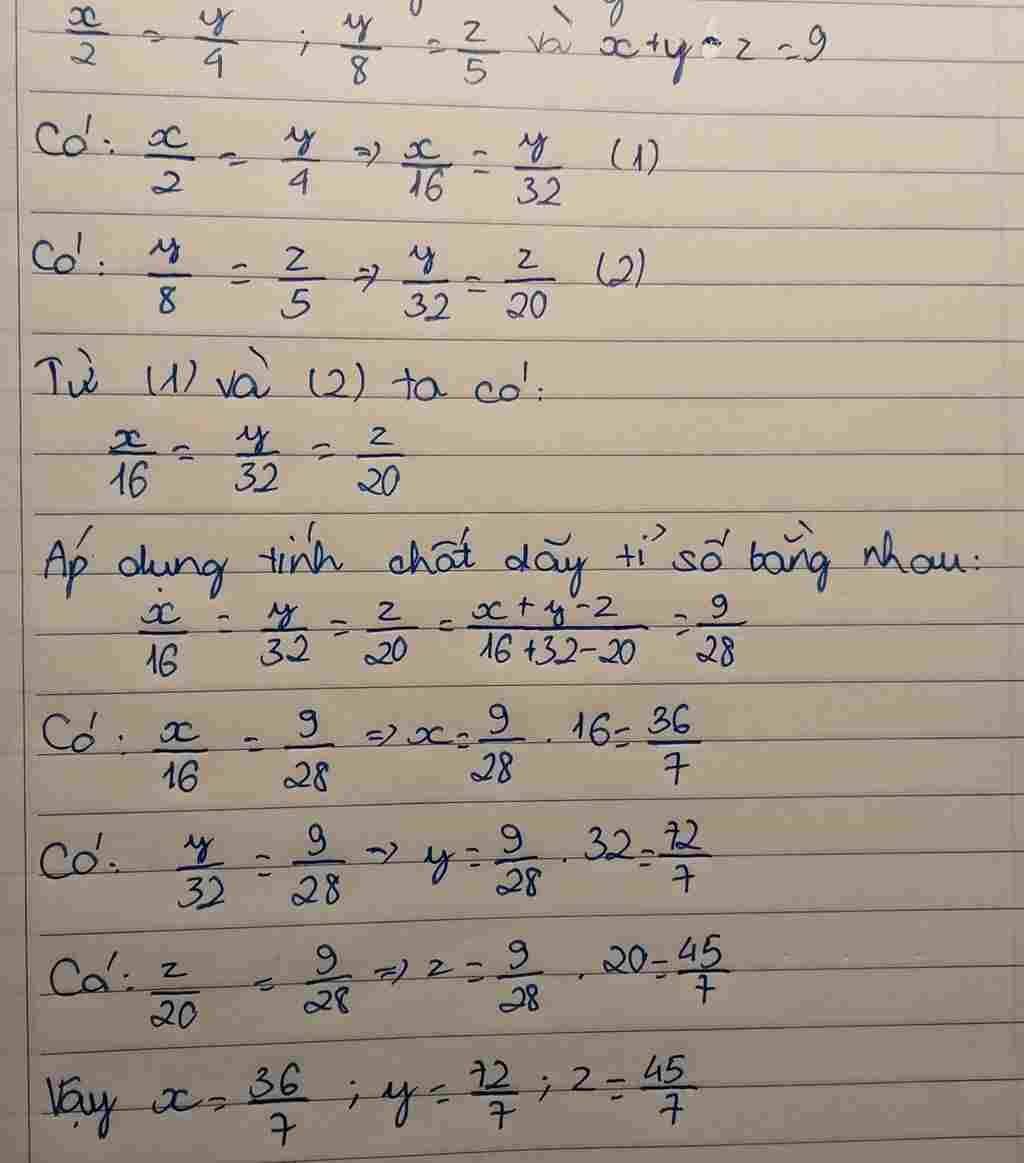 x/2 = y/4 ; y/8 = z/5 và x+y-z=9
Có: x/2 = y/4 => x/16 = y/32 (1)
Có: y/8 = z/5 => y/32 = z/20 (2)
Từ (1) và (2) ta có:
x/16 = y/32 = z/20
Áp dụng tính chất dãy tỉ số bằng nhau:
x/16 = y/32 = z/20 = x+y-z/16+32-20 = 9/28
Có: x/16 = 9/28 => x = 9/28 . 16 = 36/7
Có: y/32 = 9/28 => y = 9/28 . 32 = 72/7
Có: z/20 = 9/28 => z = 9/28 . 20 = 45/7
Vậy x = 36/7 ; y = 72/7 ; z = 45/7